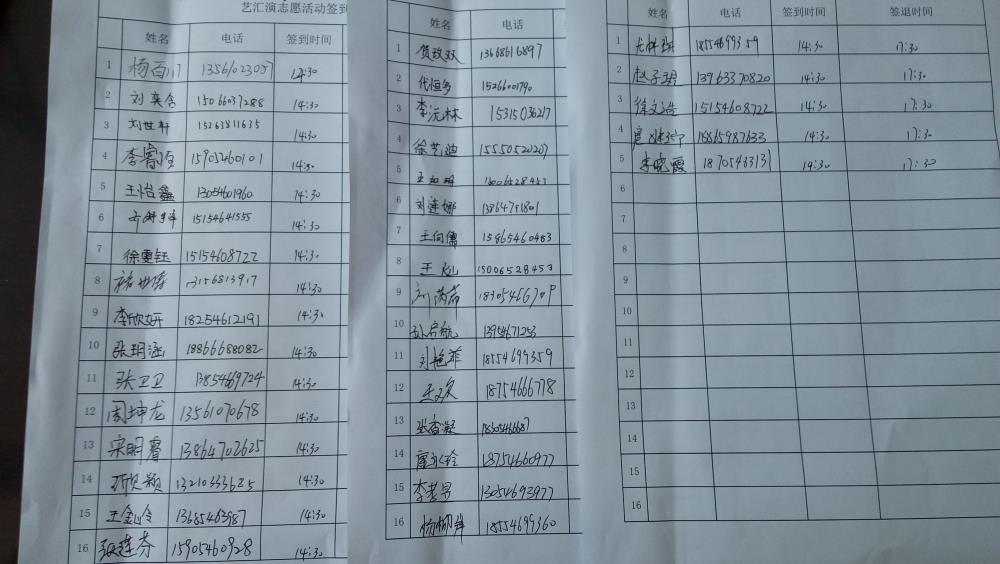 艺汇演志愿活动签到
姓名 电话 签到时间
1 杨百川 13561023057 14:30
2 刘奕含 15066037288 14:30
3 刘世轩 15263811635 14:30
4 李睿 15902660101 14:30
5 王怡鑫 13054601960 14:30
6 15154641555 14:30
7 徐雯钰 15154608722 14:30
8 14:30
9 李欣妍 18254612191 14:30
10 张玥涵 18866688082 14:30
11 张卫卫 13854669724 14:30
12 周坤龙 13561070678 14:30
13 宋明睿 13864702625 14:30
14 颖 13210333685 14:30
15 王金玲 13685463987 14:30
16 张莲芬 15905460928 14:30
姓名 电话
1 贺政双 13686816897
2 代恒多 15266001790
3 李沅林 15315036217
4 徐艺迪 15550520207
5 王
6 刘莲娜
7 王向儒 15865460483
8 王 15006528453
9 刘 18305456709
10 孙启航 13954671253
11 刘艳菲 18554699359
12 18754666778
13 张香凝 1830546687
14 18754660977
15 李孝男 13054693977
16 杨柳 18554699360
姓名 电话 签到时间 签退时间
1 18554699359 14:30 17:30
2 赵子珺 13963370820 14:30 17:30
3 徐文浩 15154608722 14:30 17:30
4 18865987633 14:30 17:30
5 李晓霞 18705463131 14:30 17:30
6
7
8
9
10
11
12
13
14
15
16